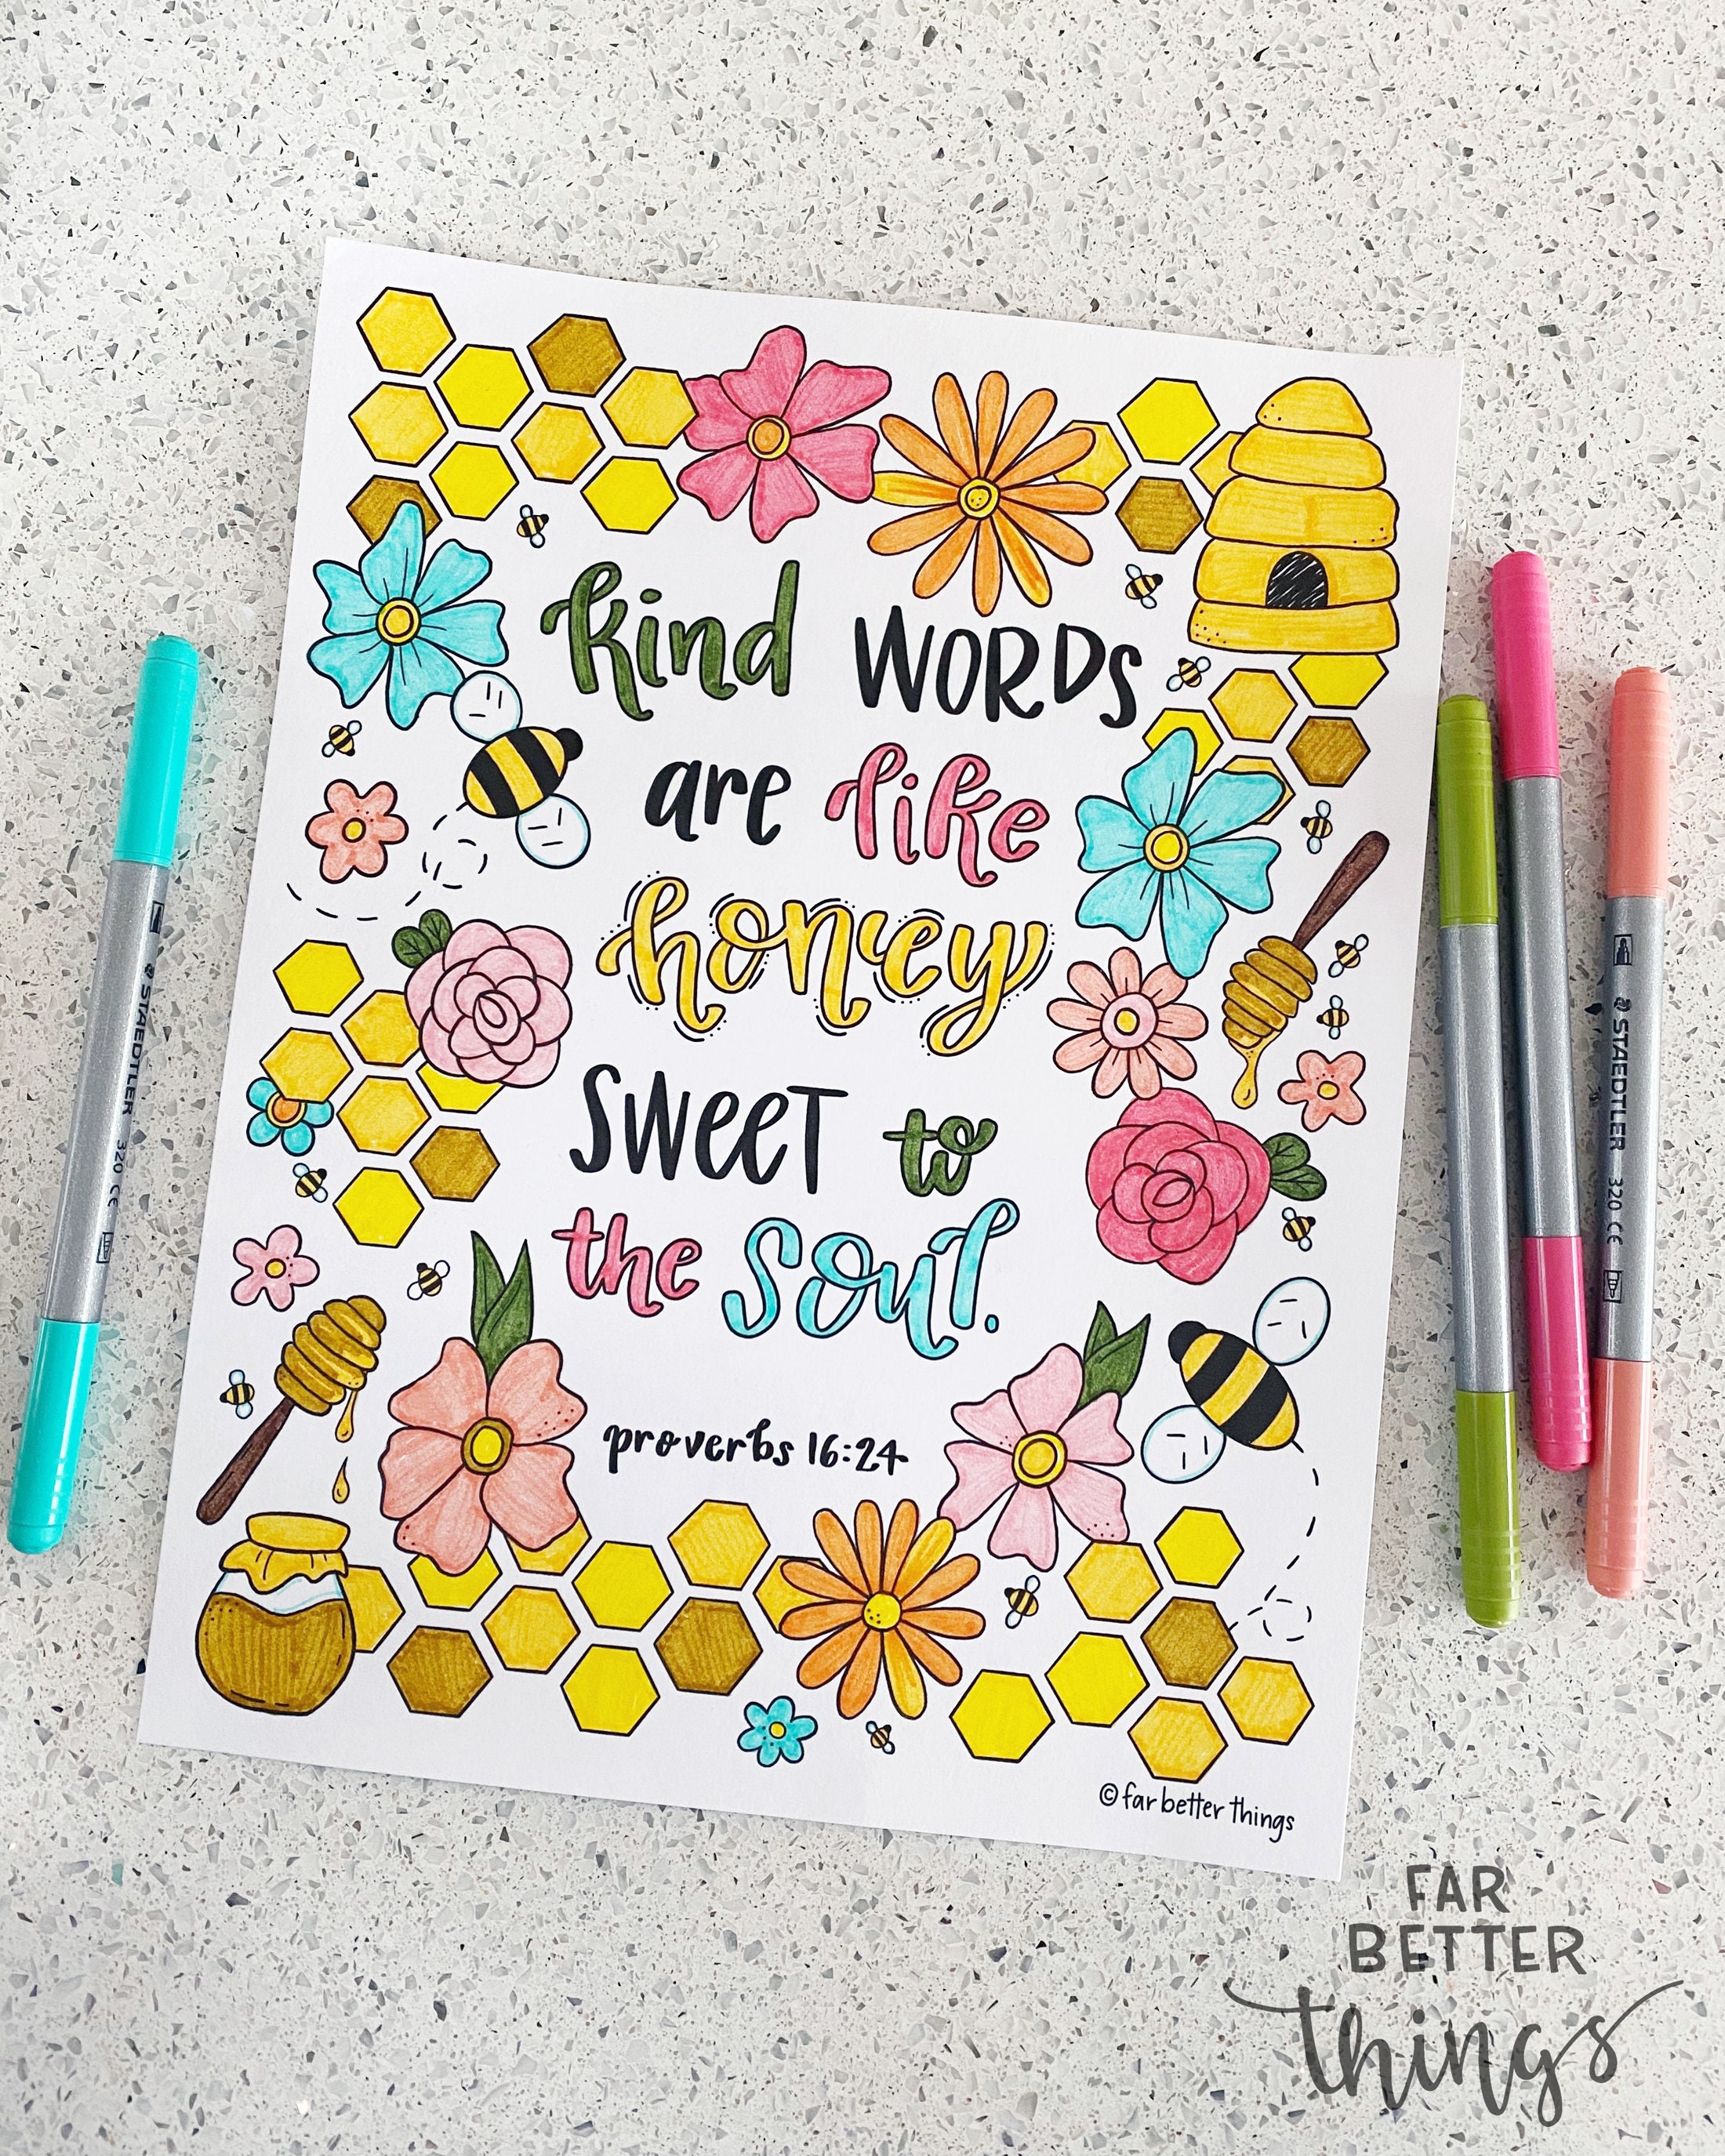 kind WORDS
are like
honey
SWEET to
the soul.
proverbs 16:24
© far better things
STAEDTLER 320 CE
STAEDTLER 320 CE
FAR
BETTER
things